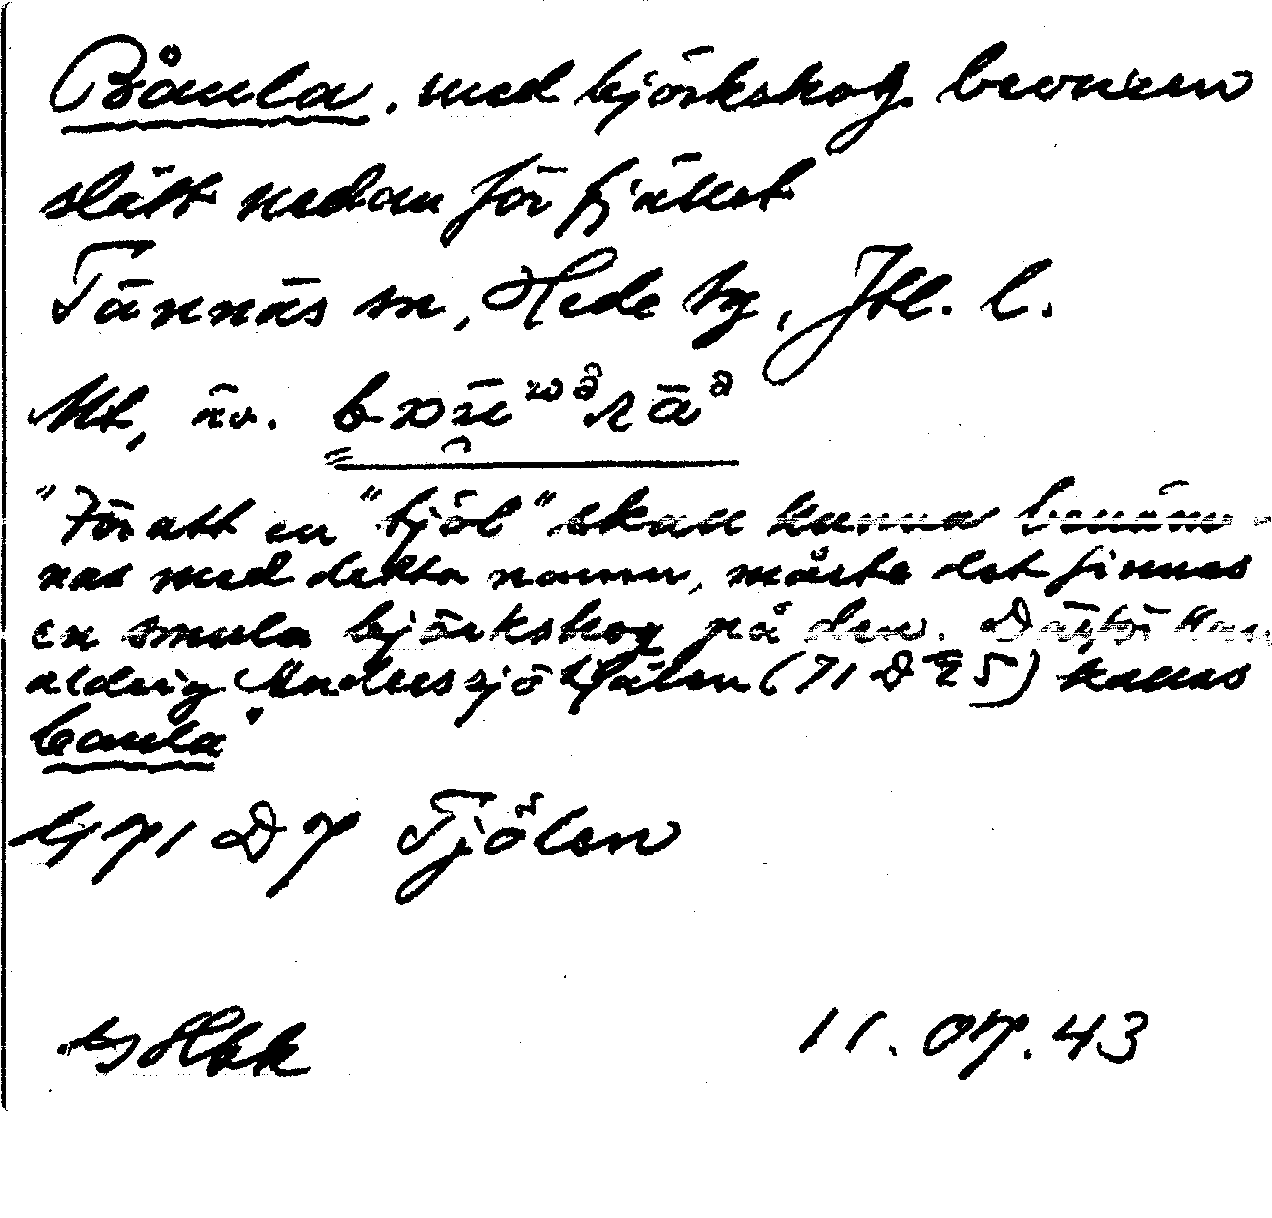 Båunla. med björkskog bevuxen
slätt nedan för fjället
Tännäs sn, Hede tg, Jtl. l.
Mt, äv.
"För att en "tjöl" skall kunna benäm-
nas med detta namn, måste det finnas
en smula björkskog på den. Därför kan
aldrig Anderssjöfjälen (71 D 25) kallas
baunla"
71 D 7 Tjölen
11. 07. 43